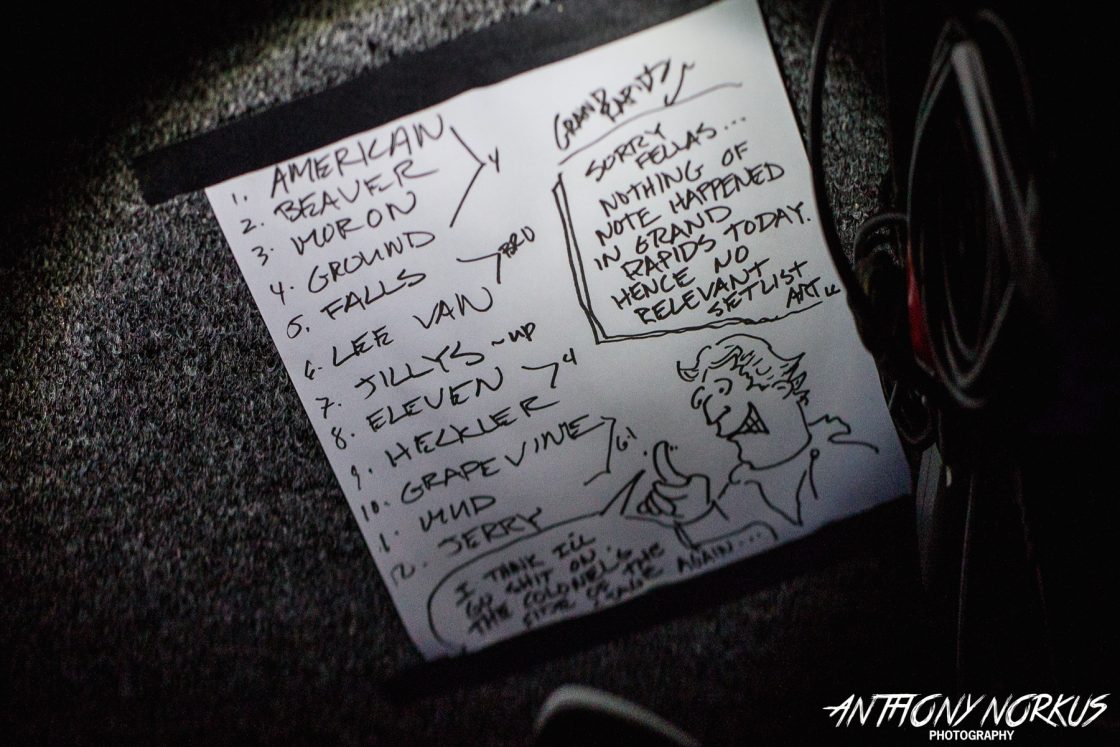 1. AMERICAN
2. BEAVER
3. MORON
4
4. GROUND
5. FALLS
BRU
6. LEE VAN
7. JILLYS ~ UP
8. ELEVEN
4
9. HECKLER
10. GRAPEVINE
6!
1. MUD
12. JERRY
GRAND
RAPIDS
SORRY
FELLAS...
NOTHING OF
NOTE HAPPENED
IN GRAND
RAPIDS TODAY.
HENCE NO
RELEVANT
SETLIST
ART
I THINK I'LL
GO SHIT ON
THE COLONEL'S
SIDE OF THE
STAGE AGAIN...
ANTHONY NORKUS
PHOTOGRAPHY